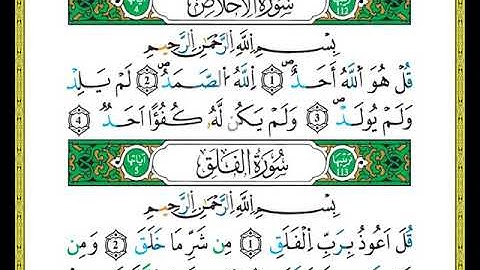 سُورَةُ الْاِخْلَاصِ 112 4
بِسْمِ اللّٰهِ الرَّحْمٰنِ الرَّحِيْمِ
قُلْ هُوَ اللّٰهُ اَحَدٌ ۚ 1 اَللّٰهُ الصَّمَدُ ۚ 2 لَمْ يَلِدْ
وَلَمْ يُولَدْ ۙ 3 وَلَمْ يَكُنْ لَهُ كُفُوًا اَحَدٌ 4
سُورَةُ الْفَلَقِ 113 اٰيَاتُهَا 5
بِسْمِ اللّٰهِ الرَّحْمٰنِ الرَّحِيْمِ
قُلْ اَعُوذُ بِرَبِّ الْفَلَقِ 1 مِن شَرِّ مَا خَلَقَ 2 وَمِن